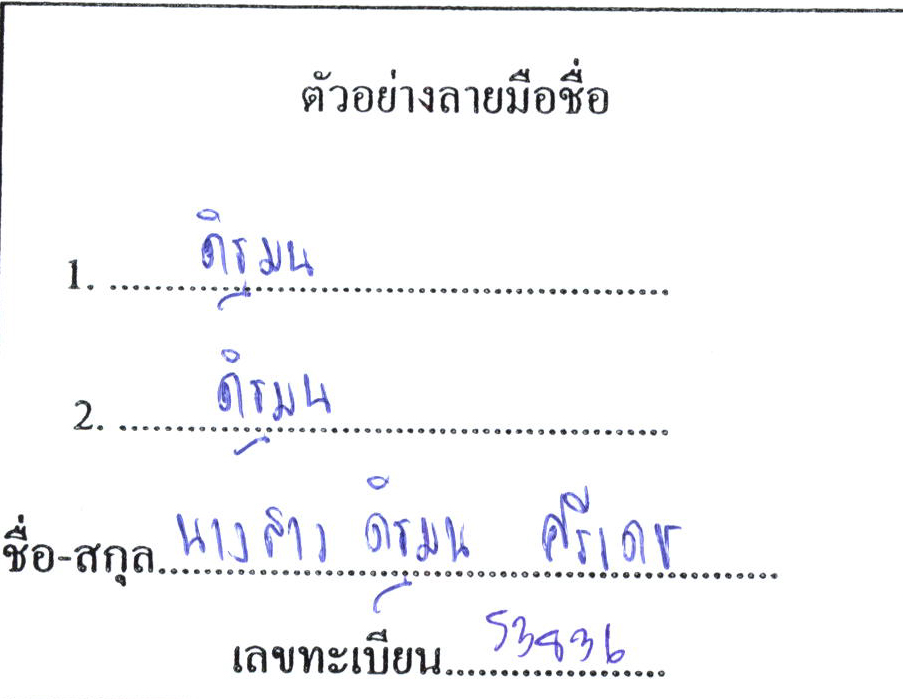 ตัวอย่างลายมือชื่อ
1. ดิฐมน
2. ดิฐมน
ชื่อ-สกุล นางสาว ดิฐมน ศรีเดช
เลขทะเบียน 53836